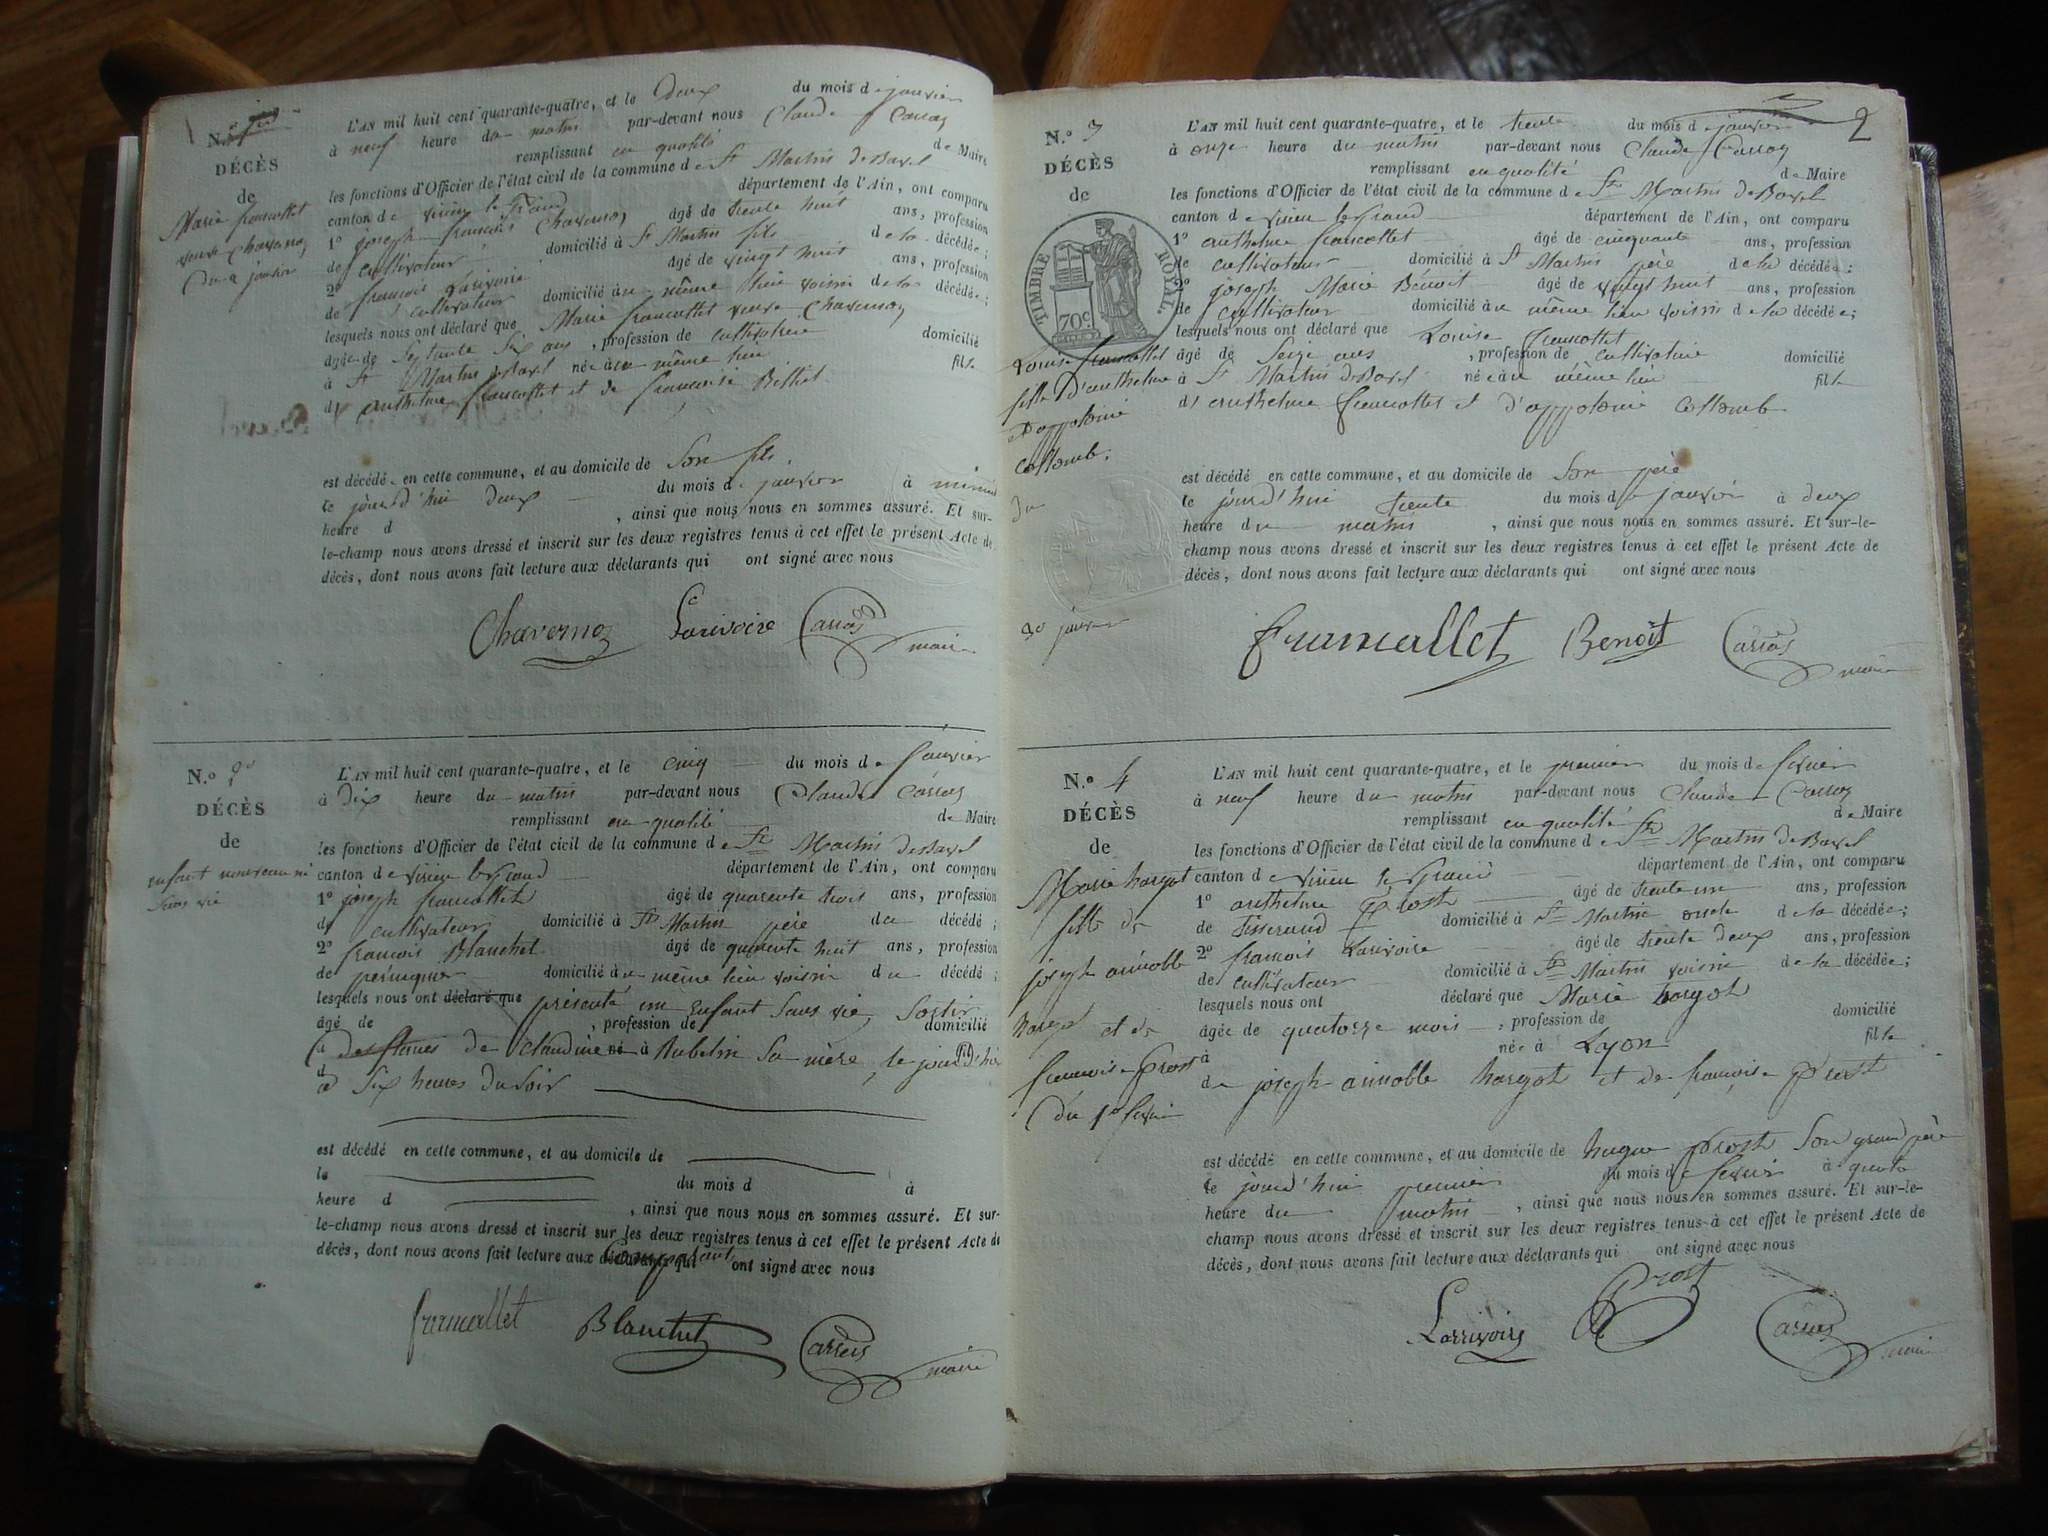 N.o
DÉCÈS
de
Marie francollet
veuve Chavernoz
Du 2 janvier
L'AN mil huit cent quarante-quatre, et le Deux du mois d e janvier
à neuf heure du matin par-devant nous Claude Carroz
remplissant en qualité de Maire
les fonctions d'Officier de l'état civil de la commune d e St Martin de Bavel
canton d e virieu le Grand département de l'Ain, ont comparu
1o joseph françois Chavernoz âgé de trente huit ans, profession
de cultivateur domicilié à St Martin fils de la décédée;
2o françois Larivoire âgé de vingt huit ans, profession
de cultivateur domicilié au même lieu voisin de la décédée;
lesquels nous ont déclaré que Marie francollet veuve Chavernoz
âgée de Septante Six ans, profession de cultivatrice domicilié
à St Martin de Bavel née au même lieu fille
d'anthelme francollet et de françoise Berthet
est décédée en cette commune, et au domicile de Son fils
le jourd'hui deux du mois de janvier à minuit
heure d , ainsi que nous nous en sommes assuré. Et sur-
le-champ nous avons dressé et inscrit sur les deux registres tenus à cet effet le présent Acte de
décès, dont nous avons fait lecture aux déclarants qui ont signé avec nous
Chavernoz Larivoire Carroz
maire
N.o 2
DÉCÈS
de
enfant nouveau né
Sans vie
L'AN mil huit cent quarante-quatre, et le cinq du mois de janvier
à Dix heure du matin par-devant nous Claude Carroz
remplissant en qualité de Maire
les fonctions d'Officier de l'état civil de la commune d e St Martin de Bavel
canton d e virieu le Grand département de l'Ain, ont comparu
1o joseph francollet âgé de quarante trois ans, profession
de cultivateur domicilié à St Martin père du décédé;
2o françois Blanchet âgé de quarante huit ans, profession
de perruquier domicilié au même lieu voisin du décédé;
lesquels nous ont déclaré que présenté un enfant Sans vie, Sortir
âgé de , profession de domicilié
à des flancs de Claudine né à Rubelin Sa mère, le jourd'hui
à Six heures du Soir
est décédé en cette commune, et au domicile de
le du mois d à
heure d , ainsi que nous nous en sommes assuré. Et sur-
le-champ nous avons dressé et inscrit sur les deux registres tenus à cet effet le présent Acte de
décès, dont nous avons fait lecture aux déclarants qui Comparants ont signé avec nous
francollet Blanchet Carroz
maire
2
N.o 3
DÉCÈS
de
TIMBRE ROYAL
70c
Louise francollet
fille D'anthelme
et D'appolonie
Collomb.
du
30 janvier
L'AN mil huit cent quarante-quatre, et le trente du mois d e janvier
à onze heure du matin par-devant nous Claude Carroz
remplissant en qualité de Maire
les fonctions d'Officier de l'état civil de la commune d e St Martin de Bavel
canton d e virieu le Grand département de l'Ain, ont comparu
1o anthelme francollet âgé de cinquante ans, profession
de cultivateur domicilié à St Martin père de la décédée;
2o joseph Marie Benoit âgé de vingt huit ans, profession
de cultivateur domicilié au même lieu voisin de la décédée;
lesquels nous ont déclaré que Louise francollet
âgé de Seize ans, profession de cultivatrice domicilié
à St Martin de Bavel née au même lieu fille
d'anthelme francollet et d'appolonie Collomb
est décédé en cette commune, et au domicile de Son père
le jourd'hui trente du mois de janvier à deux
heure du matin, ainsi que nous nous en sommes assuré. Et sur-le-
champ nous avons dressé et inscrit sur les deux registres tenus à cet effet le présent Acte de
décès, dont nous avons fait lecture aux déclarants qui ont signé avec nous
francollet Benoît Carroz
maire
N.o 4
DÉCÈS
de
Marie hargot
fille de
joseph aimable
hargot et de
françoise Prost
du 1er fevrier
L'AN mil huit cent quarante-quatre, et le premier du mois de fevrier
à neuf heure du matin par-devant nous Claude Carroz
remplissant en qualité de Maire
les fonctions d'Officier de l'état civil de la commune d e St Martin de Bavel
canton d e virieu le Grand département de l'Ain, ont comparu
1o anthelme Prost âgé de trente un ans, profession
de Tisserand domicilié à St Martin oncle de la décédée;
2o françois Larivoire âgé de trente deux ans, profession
de cultivateur domicilié à St Martin voisin de la décédée;
lesquels nous ont déclaré que Marie hargot
âgée de quatorze mois, profession de domicilié
à née à Lyon fille
de joseph aimable hargot et de françoise Prost
est décédé en cette commune, et au domicile de hugue Prost Son grand père
le jourd'hui premier du mois de fevrier à quatre
heure du matin, ainsi que nous nous en sommes assuré. Et sur-le-
champ nous avons dressé et inscrit sur les deux registres tenus à cet effet le présent Acte de
décès, dont nous avons fait lecture aux déclarants qui ont signé avec nous
Larrivoire Prost Carroz
maire